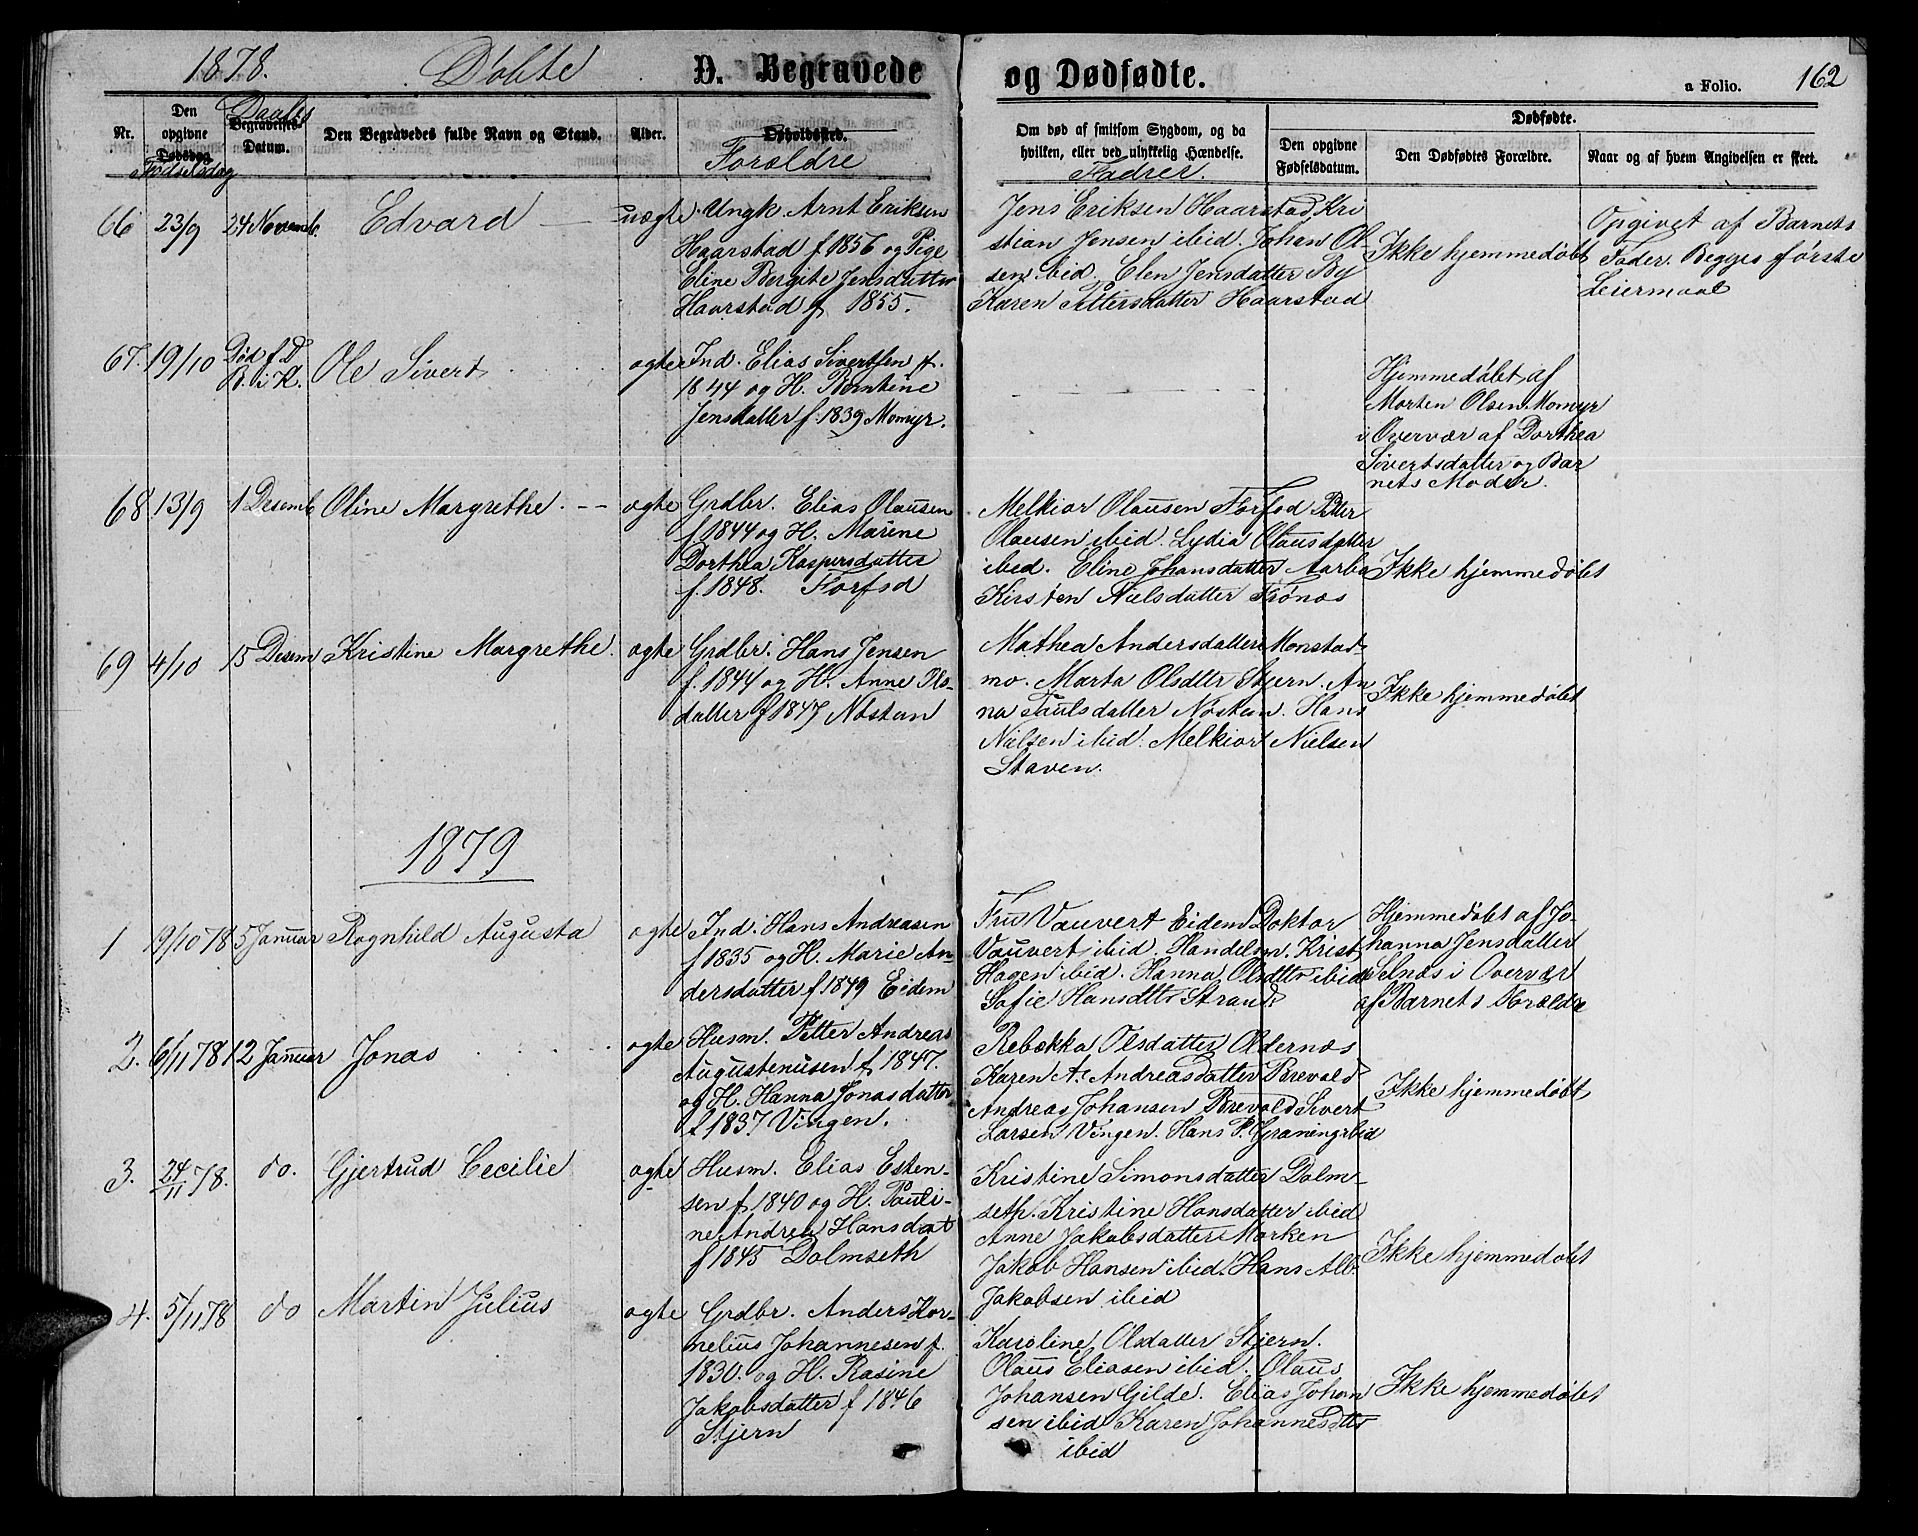 1878. Døbte D. Begravede
og Dødfødte. a Folio. 162
Nr.
Den opgivne Dødsdag
Fødselsdag
Daabs
Begravelses-Datum.
Den Begravedes fulde Navn og Stand.
Alder.
Opholdssted.
Forældre
Om død af smitsom Sygdom, og da
hvilken, eller ved ulykkelig Hændelse.
Fadrer.
Dødfødte.
Den opgivne
Fødselsdatum.
Den Dødfødtes Forældre.
Naar og af hvem Angivelsen er skeet.
66 23/9 24 Novemb. Edvard uægte
Ungk. Arnt Eriksen
Haarstad f 1856 og Pige
Eline Bergite Jensdatter
Haarstad f 1855.
Jens Eriksen Haarstad, Kri
stian Jensen ibid. Johan Ol-
sen ibid. Elen Jensdatter By
Karen Pettersdatter Haarstad
Ikke hjemmedøbt
Opgivet af Barnets
Fader. Begges første
Leiermaal
67. 19/10 Død f. D.
B. i K.
Ole Sivert ægte
Ind. Elias Sivertsen f.
1844 og H. Berntine
Jensdatter f. 1839 Momyr.
Hjemmedøbt af
Morten Olsen Momyr
i Overvær af Dorthea
Sivertsdatter og Bar
nets Moder.
68. 13/9 1 Desemb Oline Margrethe. ægte
Grdbr. Elias Olausen
f 1844 og H. Marine
Dorthea Kaspersdatter
f. 1848. Forfod
Melkior Olausen Forfod Peter
Olausen ibid. Lydia Olausdatter
ibid. Eline Johansdatter Aarbo
Kirsten Nielsdatter Frønes
Ikke hjemmedøbt
69 4/10 15 Desem Kristine Margrethe. ægte
Grdbr. Hans Jensen
f. 1844 og H. Anne Ols-
datter f 1847 Nøstan
Mathea Andersdatter Monstad-
mo. Marta Olsdtr Stjern. An
na Paulsdatter Nøstan. Hans
Nielsen ibid. Melkior Nielsen
Staven.
Ikke hjemmedøbt
1879
1 19/10 78 5 Januar Ragnhild Augusta ægte
Ind. Hans Andreasen
f 1835 og H. Marie An-
dersdatter f 1849 Eidem
Fru Vauvert Eidem Doktor
Vauvert ibid. Handelsm. Krist.
Hagen ibid. Hanna Olsdtr ibid
Sofie Hansdtr Strand.
Hjemmedøbt af Jo-
hanna Jensdatter
Selnæs i Overvær
af Barnets Forældre
2. 6/11 78 12 Januar Jonas ægte
Husm. Petter Andreas
Augustenusen f 1847.
og H. Hanna Jonasdatter
f 1837 Vingen.
Rebekka Olsdatter Oldernæs
Karen A. Andreasdatter Brevold
Andreas Johansen Brevold Sivert
Larsen Vingen. Hans P. Græning ibid
Ikke hjemmedøbt
3. 24/11 78. do. Gjertrud Cecilie ægte
Husm. Elias Esten-
sen f 1840 og H. Pauli-
ne Andrea Hansdat
f 1845 Dalmseth
Kristine Simonsdatter Dalm-
seth. Kristine Hansdatter ibid
Anne Jakobsdatter Marken
Jakob Hansen ibid. Hans Alb-
Jakobsen ibid
Ikke hjemmedøbt
4. 5/11 78 do Martin Julius ægte
Grdbr. Anders Kor-
nelius Johannesen f.
1830. og H. Rasine
Jakobsdatter f 1846
Stjern
Karoline Olsdatter Stjern.
Olaus Eliasen ibid. Olaus
Johansen Gilde. Elias Johan
sen ibid Karen Johannesdtr
ibid
Ikke hjemmedøbt